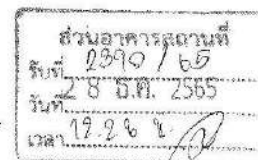 ส่วนอาคารสถานที่
รับที่ 2390 / 65
วันที่ 28 ธ.ค. 2565
เวลา 12.26 น.